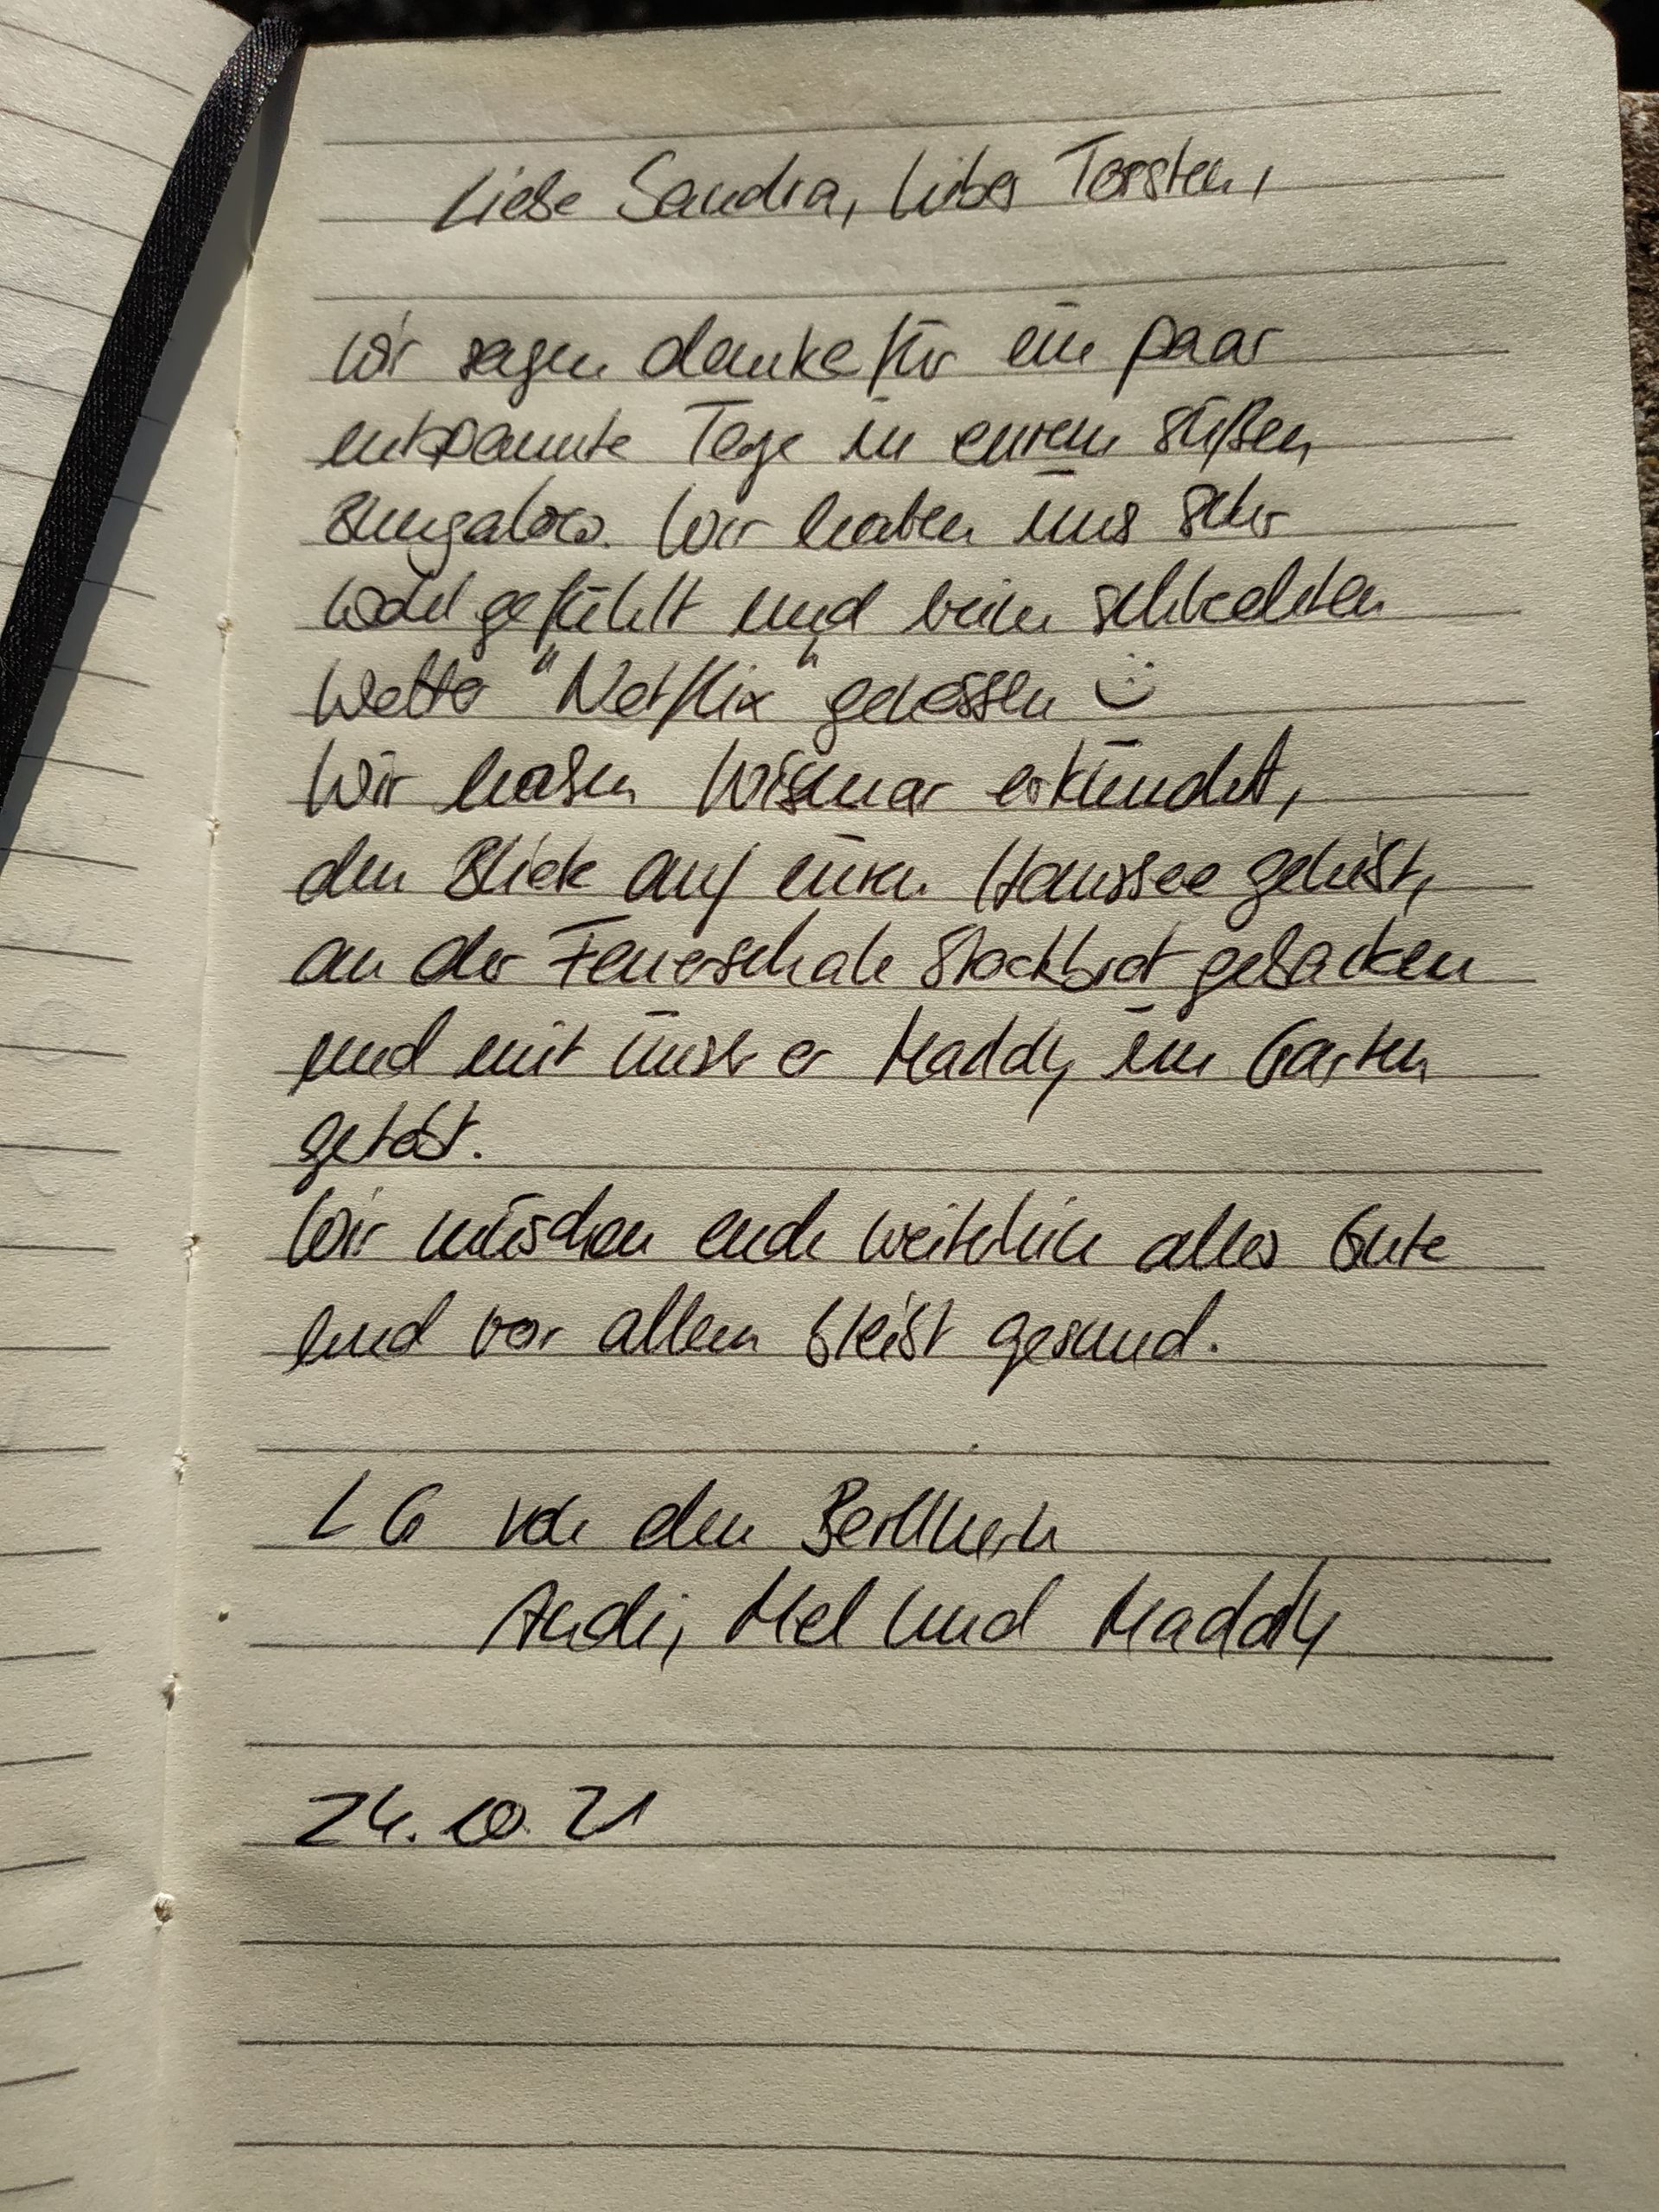 Liebe Sandra, lieber Torsten,
wir sagen danke für ein paar
entspannte Tage in eurem süßen
Bungalow. Wir haben uns sehr
wohl gefühlt und beim schlechten
Wetter "Netflix" genossen :)
Wir haben Wismar erkundet,
den Blick auf euren Haussee
an der Feuerschale Stockbrot gebacken
und mit unserer Maddy im Garten
getobt.
Wir wünschen euch weiterhin alles Gute
und vor allem bleibt gesund.
LG von den Berlinern
Andi, Mel und Maddy
24.10.21